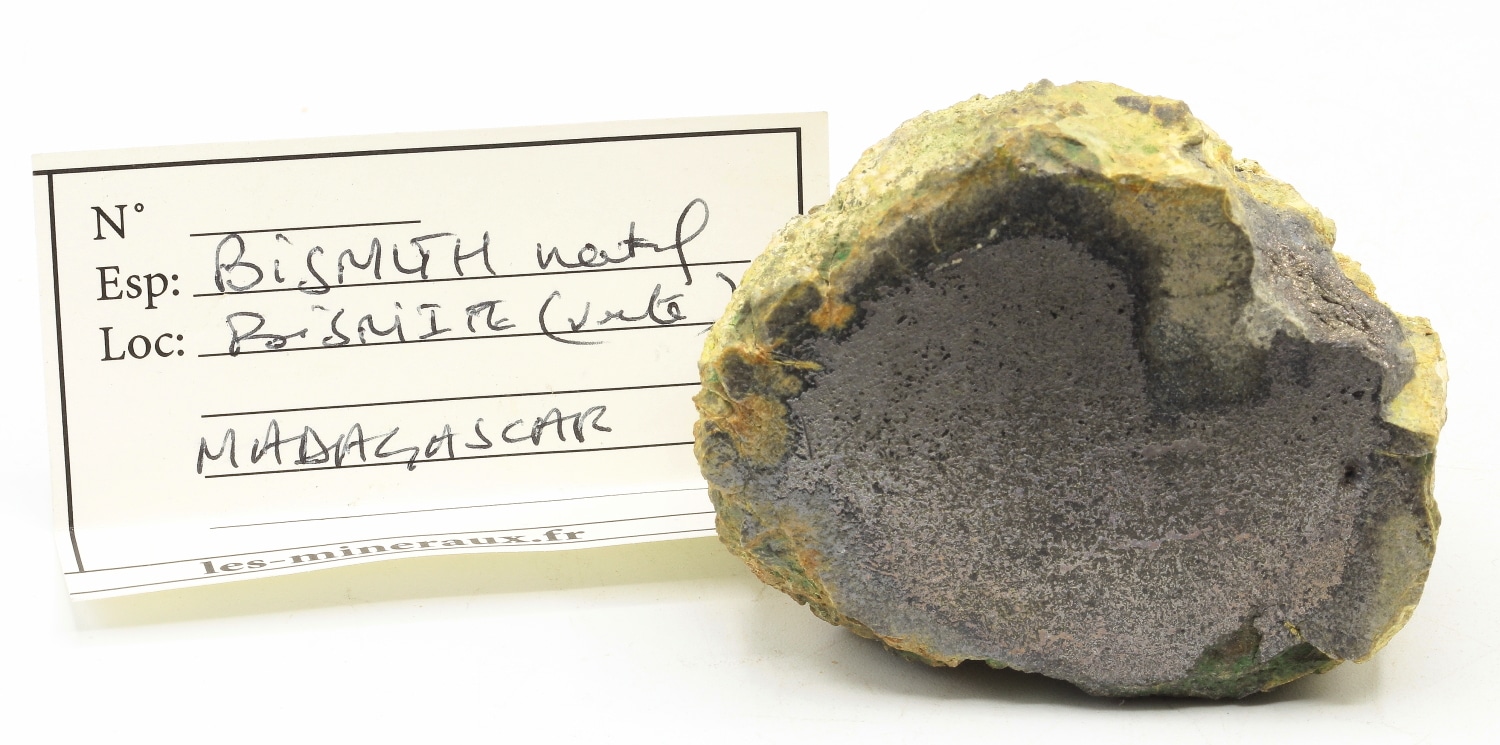 N°
Esp: BiSMUTH natif
Loc: BiSMITE (verte)
MADAGASCAR
les-mineraux.fr